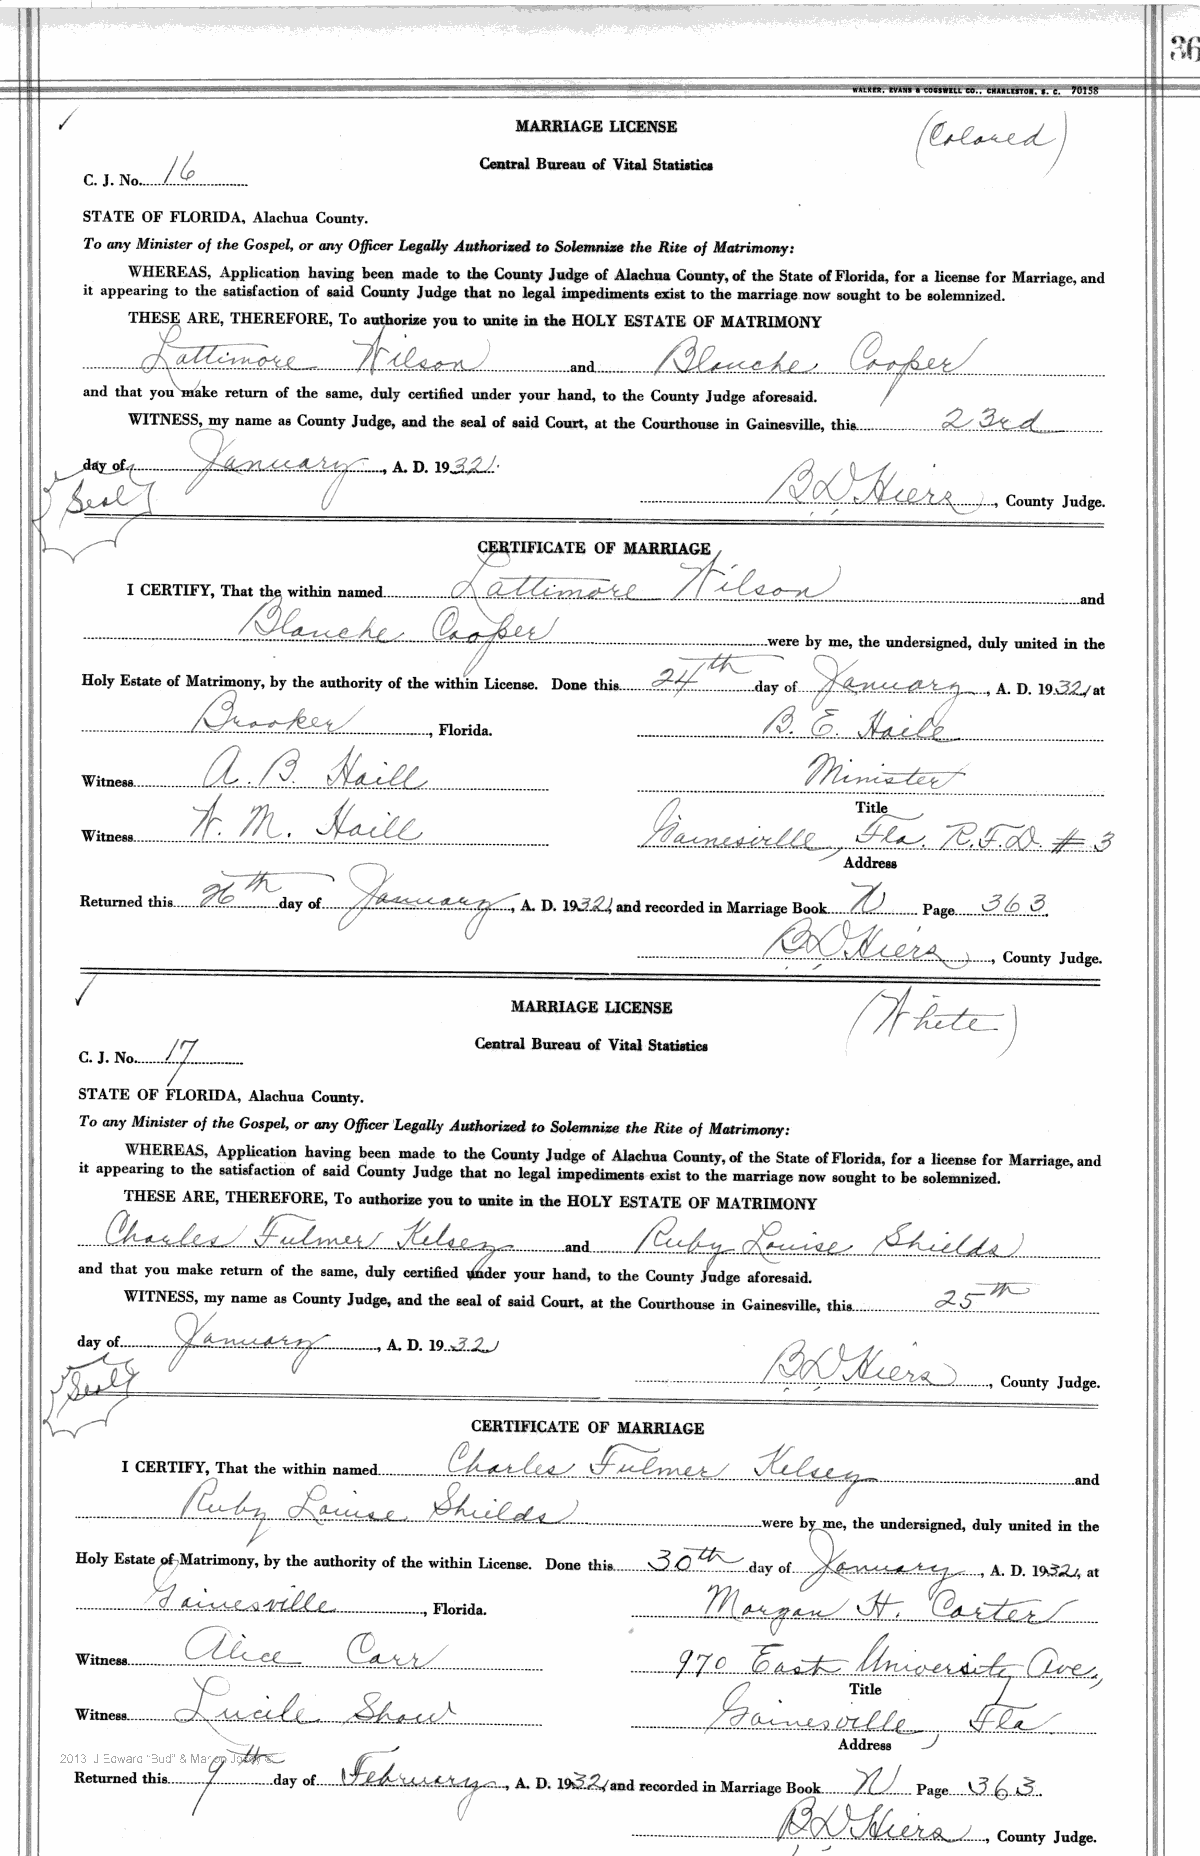 36
WALKER, EVANS & COGSWELL CO., CHARLESTON, S. C. 70158
MARRIAGE LICENSE
(Colored)
Central Bureau of Vital Statistics
C. J. No. 16
STATE OF FLORIDA, Alachua County.
To any Minister of the Gospel, or any Officer Legally Authorized to Solemnize the Rite of Matrimony:
WHEREAS, Application having been made to the County Judge of Alachua County, of the State of Florida, for a license for Marriage, and
it appearing to the satisfaction of said County Judge that no legal impediments exist to the marriage now sought to be solemnized.
THESE ARE, THEREFORE, To authorize you to unite in the HOLY ESTATE OF MATRIMONY
Lattimore Wilson and Blanche Cooper
and that you make return of the same, duly certified under your hand, to the County Judge aforesaid.
WITNESS, my name as County Judge, and the seal of said Court, at the Courthouse in Gainesville, this 23rd
day of January, A. D. 1932.
Seal
B D Hiers, County Judge.
CERTIFICATE OF MARRIAGE
I CERTIFY, That the within named Lattimore Wilson and
Blanche Cooper were by me, the undersigned, duly united in the
Holy Estate of Matrimony, by the authority of the within License. Done this 24th day of January, A. D. 1932, at
Brooker, Florida. B. E. Haile
Witness A. B. Haill Minister
Title
Witness W. M. Haill Gainesville, Fla. R.F.D. # 3
Address
Returned this 26th day of January, A. D. 1932, and recorded in Marriage Book N Page 363.
B D Hiers, County Judge.
MARRIAGE LICENSE
(White)
Central Bureau of Vital Statistics
C. J. No. 17
STATE OF FLORIDA, Alachua County.
To any Minister of the Gospel, or any Officer Legally Authorized to Solemnize the Rite of Matrimony:
WHEREAS, Application having been made to the County Judge of Alachua County, of the State of Florida, for a license for Marriage, and
it appearing to the satisfaction of said County Judge that no legal impediments exist to the marriage now sought to be solemnized.
THESE ARE, THEREFORE, To authorize you to unite in the HOLY ESTATE OF MATRIMONY
Charles Fulmer Kelsey and Ruby Louise Shields
and that you make return of the same, duly certified under your hand, to the County Judge aforesaid.
WITNESS, my name as County Judge, and the seal of said Court, at the Courthouse in Gainesville, this 25th
day of January, A. D. 1932
Seal
B D Hiers, County Judge.
CERTIFICATE OF MARRIAGE
I CERTIFY, That the within named Charles Fulmer Kelsey and
Ruby Louise Shields were by me, the undersigned, duly united in the
Holy Estate of Matrimony, by the authority of the within License. Done this 30th day of January, A. D. 1932, at
Gainesville, Florida. Morgan H. Carter
Witness Alice Carr 970 East University Ave.,
Title
Witness Lucile Shaw Gainesville, Fla
Address
2013 J Edward "Bud" & Marion
Returned this 9th day of February, A. D. 1932, and recorded in Marriage Book N Page 363.
B D Hiers, County Judge.